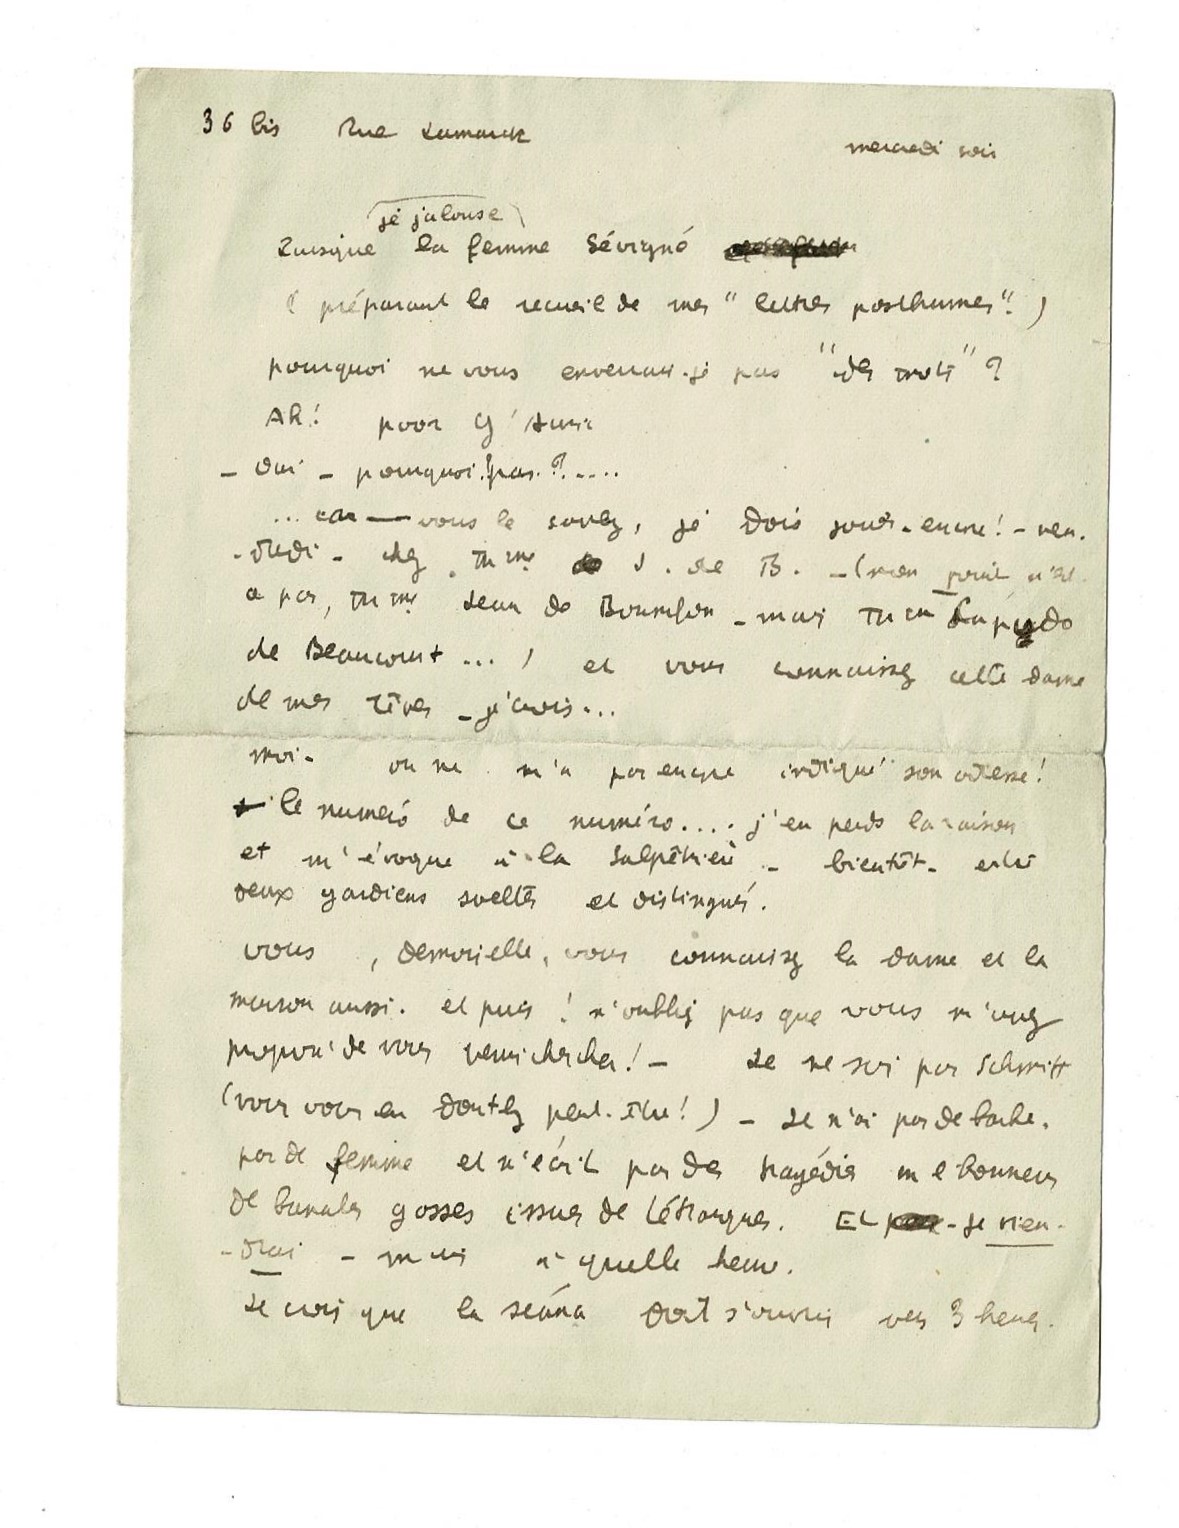 36 bis Rue Lamarck
mercredi soir
je jalouse
Puisque la femme Sévigné
(préparant le recueil de mes "lettres posthumes"!)
pourquoi ne vous enverrais-je pas "des mots" ?
Ah! poor
- Oui - pourquoi! pas.?.....
... car — vous le savez, je dois jouer - encore! - ven-
-dredi - chez Mme J. de B. - (mon
a pas, Mme Jean de - mais Mme
de Beaucourt ... ) et vous connaissez cette dame
de mes rêves - je crois...
moi - on ne m'a pas encore indiqué son adresse!
le numéro de ce numéro.... j'en perds la raison
et m'évoque à la Salpêtrière - bientôt - entre
deux gardiens sveltes et distingués.
vous, demoiselle, vous connaissez la dame et la
maison aussi. et puis! n'oubliez pas que vous m'avez
proposé de vous venir chercher! - Je ne suis pas Schmitt
(vous vous en doutez peut-être!) - Je n'ai pas de barbe,
pas de femme et n'écrit pas des tragédies
de banales gosses issues de Tétrarques. Et - je vien-
-drai - mais à quelle heure.
Je crois que la séance doit s'ouvrir vers 3 heures.